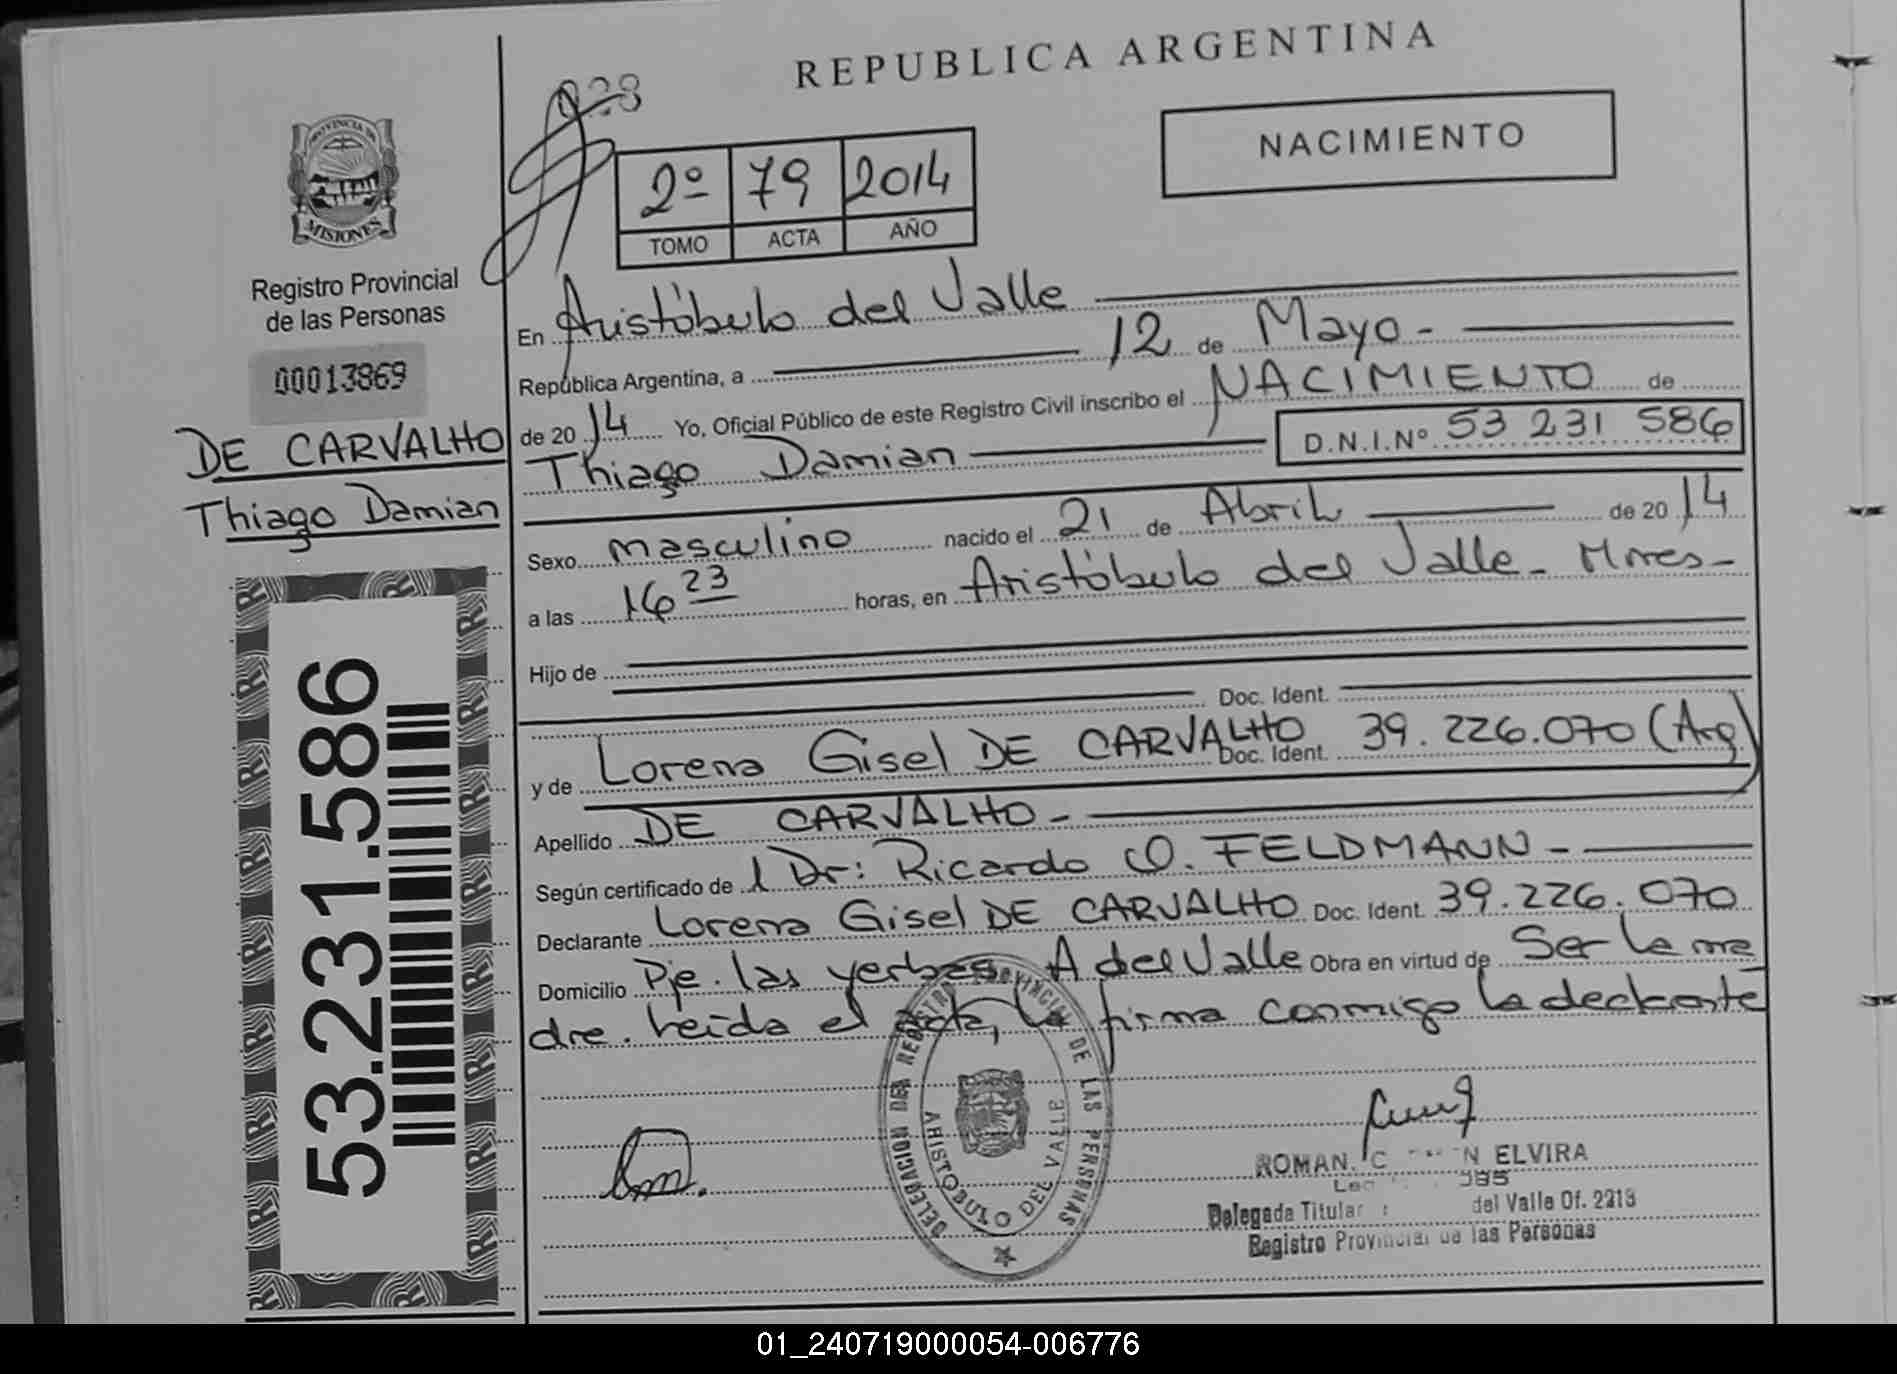 REPUBLICA ARGENTINA
028
NACIMIENTO
PROVINCIA DE
MISIONES
2º 79 2014
TOMO ACTA AÑO
Registro Provincial
de las Personas
00013869
DE CARVALHO
Thiago Damian
53.231.586
En Aristóbulo del Valle
República Argentina, a 12 de Mayo -
de 2014 Yo, Oficial Público de este Registro Civil inscribo el NACIMIENTO de
Thiago Damian D.N.I.Nº 53 231 586
Sexo masculino nacido el 21 de Abril de 2014
a las 16 23 horas, en Aristóbulo del Valle - Mnes -
Hijo de
Doc. Ident.
y de Lorena Gisel DE CARVALHO Doc. Ident. 39.226.070 (Arg)
Apellido DE CARVALHO -
Según certificado de l Dr: Ricardo O. FELDMANN -
Declarante Lorena Gisel DE CARVALHO Doc. Ident. 39.226.070
Domicilio Pje. las yerbas A del Valle Obra en virtud de Ser la ma
dre. Leída el acta, la firma conmigo la declarante
DELEGACION DEL REGISTRO PROVINCIAL DE LAS PERSONAS
ARISTOBULO DEL VALLE
ROMAN, ELVIRA
Delegada Titular del Valle Of. 2213
Registro Provincial de las Personas
01_240719000054-006776